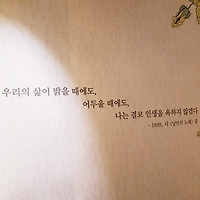 우리의 삶이 밝을 때에도,
어두울 때에도,
나는 결코 인생을 욕하지 않겠다
- 1899, 시 <낭만의 노래> 중